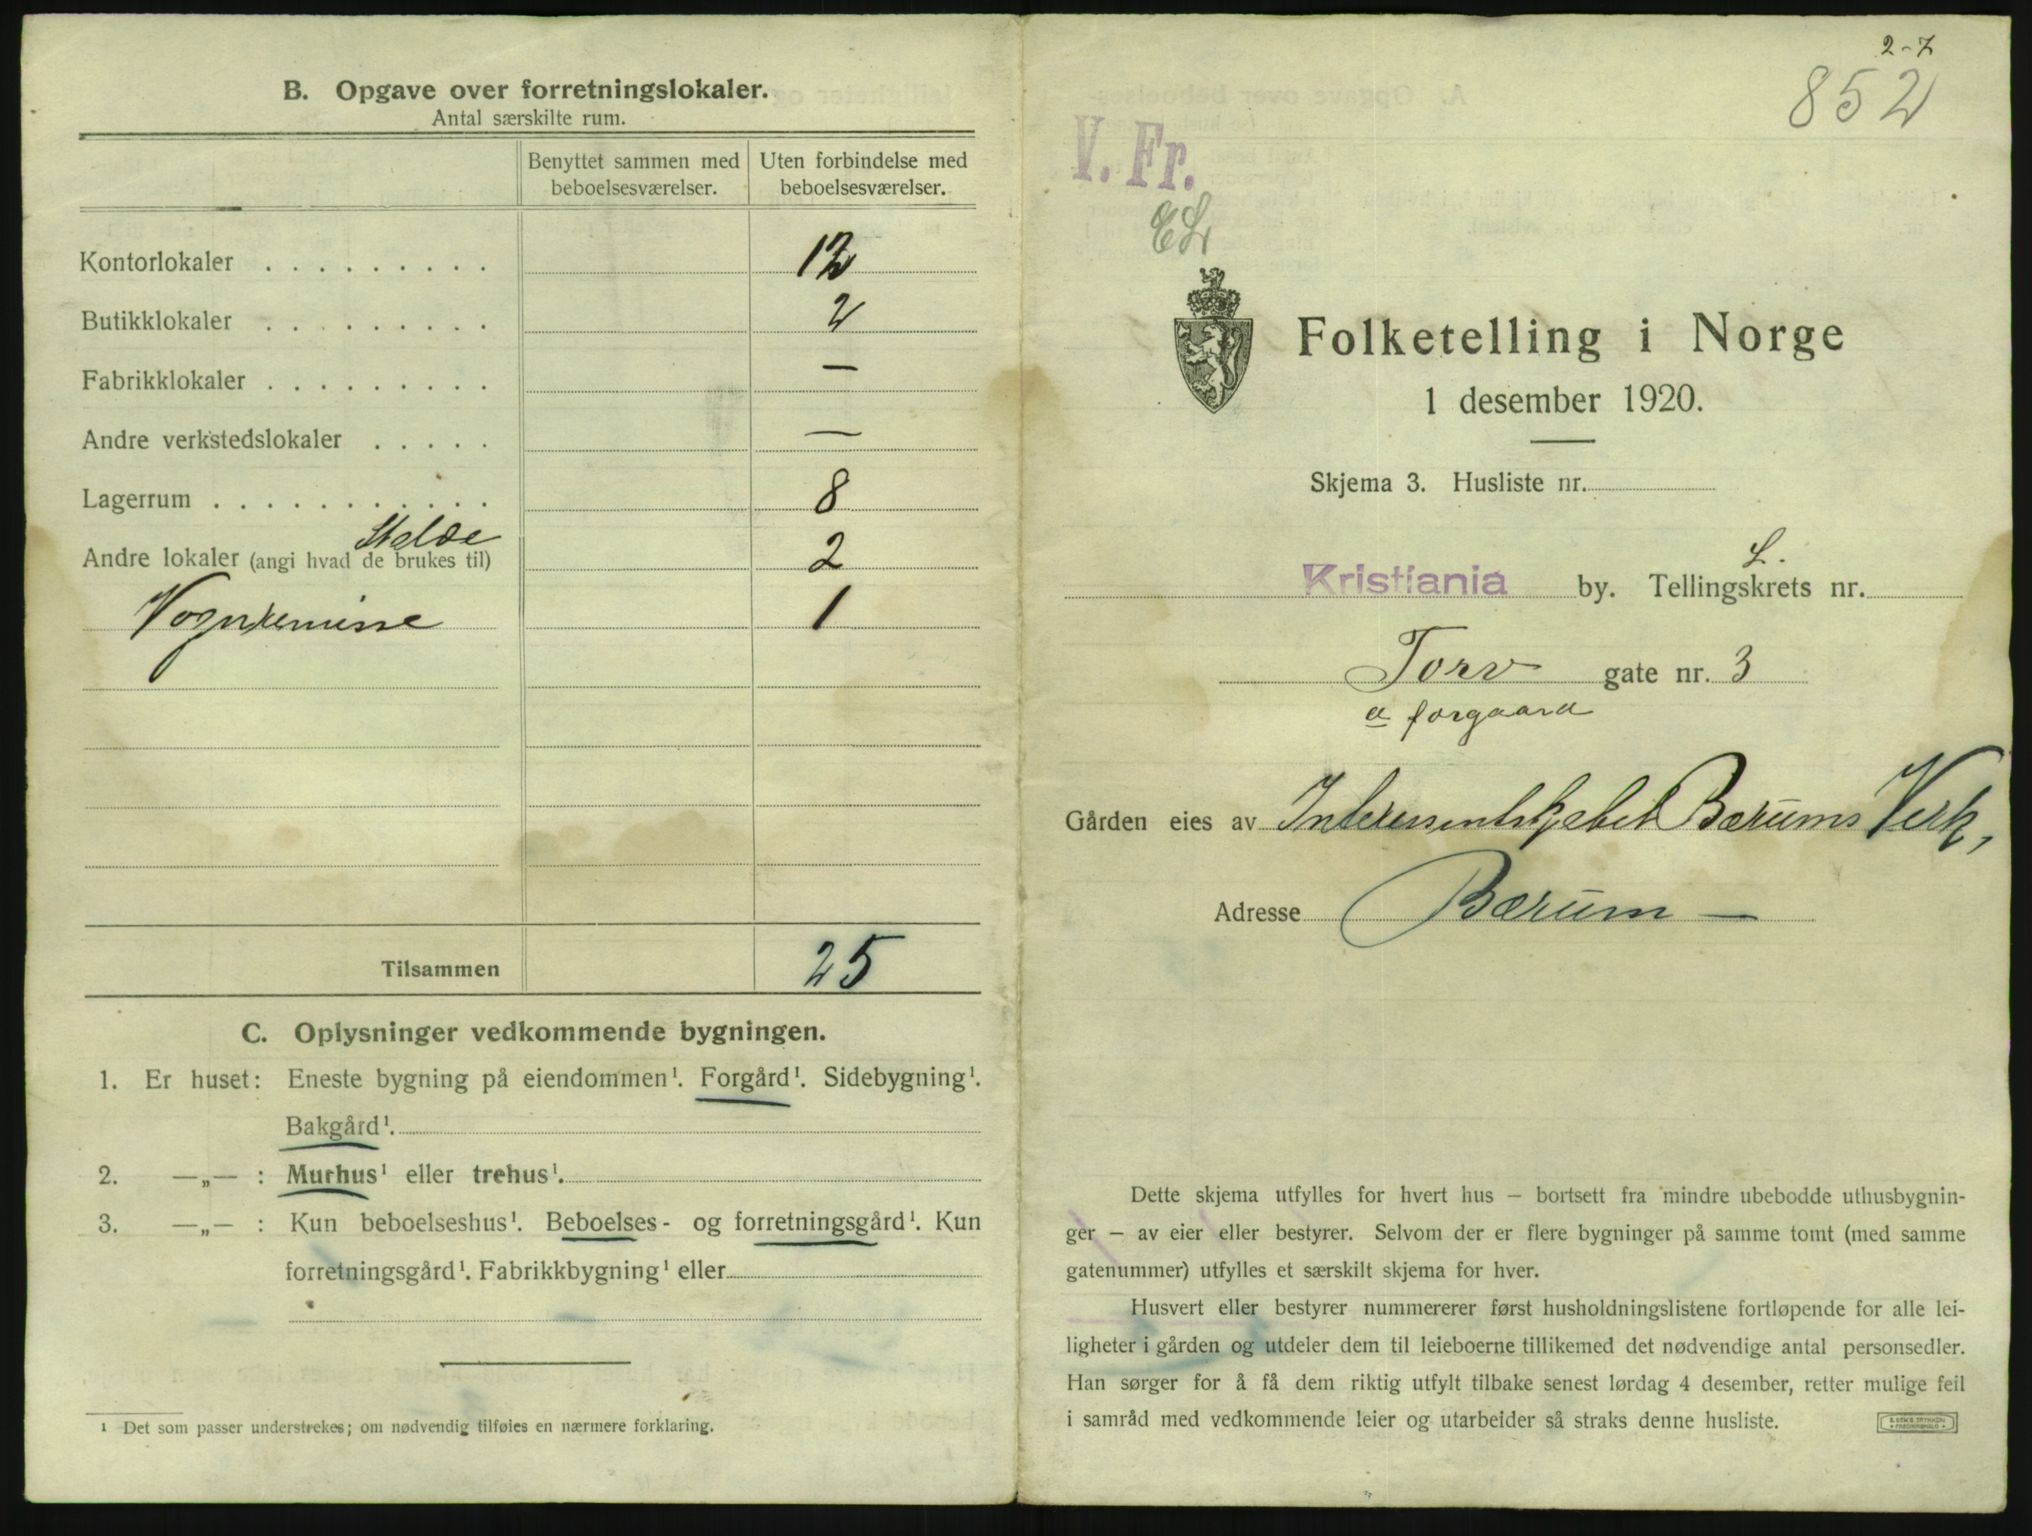 B. Opgave over forretningslokaler.
Antal særskilte rum.
Benyttet sammen med beboelsesværelser.
Uten forbindelse med beboelsesværelser.
Kontorlokaler . . . . . . . . . 12
Butikklokaler . . . . . . . . . 2
Fabrikklokaler . . . . . . . . . —
Andre verkstedslokaler . . . . . —
Lagerrum . . . . . . . . . . . 8
Stalde
Andre lokaler (angi hvad de brukes til) 2
Vognremisse 1
Tilsammen 25
C. Oplysninger vedkommende bygningen.
1. Er huset: Eneste bygning på eiendommen¹. Forgård¹. Sidebygning¹.
Bakgård¹.
2. —„— : Murhus¹ eller trehus¹.
3. —„— : Kun beboelseshus¹. Beboelses- og forretningsgård¹. Kun
forretningsgård¹. Fabrikkbygning¹ eller
¹ Det som passer understrekes; om nødvendig tilføies en nærmere forklaring.
2-7
852
V. Fr.
Folketelling i Norge
1 desember 1920.
Skjema 3. Husliste nr.
L.
Kristiania by. Tellingskrets nr.
Torv gate nr. 3
a forgaard
Gården eies av Interessentskjabet Bærums Verk,
Adresse Bærum —
Dette skjema utfylles for hvert hus — bortsett fra mindre ubebodde uthusbygnin-
ger — av eier eller bestyrer. Selvom der er flere bygninger på samme tomt (med samme
gatenummer) utfylles et særskilt skjema for hver.
Husvert eller bestyrer nummererer først husholdningslistene fortløpende for alle lei-
ligheter i gården og utdeler dem til leieboerne tillikemed det nødvendige antal personsedler.
Han sørger for å få dem riktig utfylt tilbake senest lørdag 4 desember, retter mulige feil
i samråd med vedkommende leier og utarbeider så straks denne husliste.